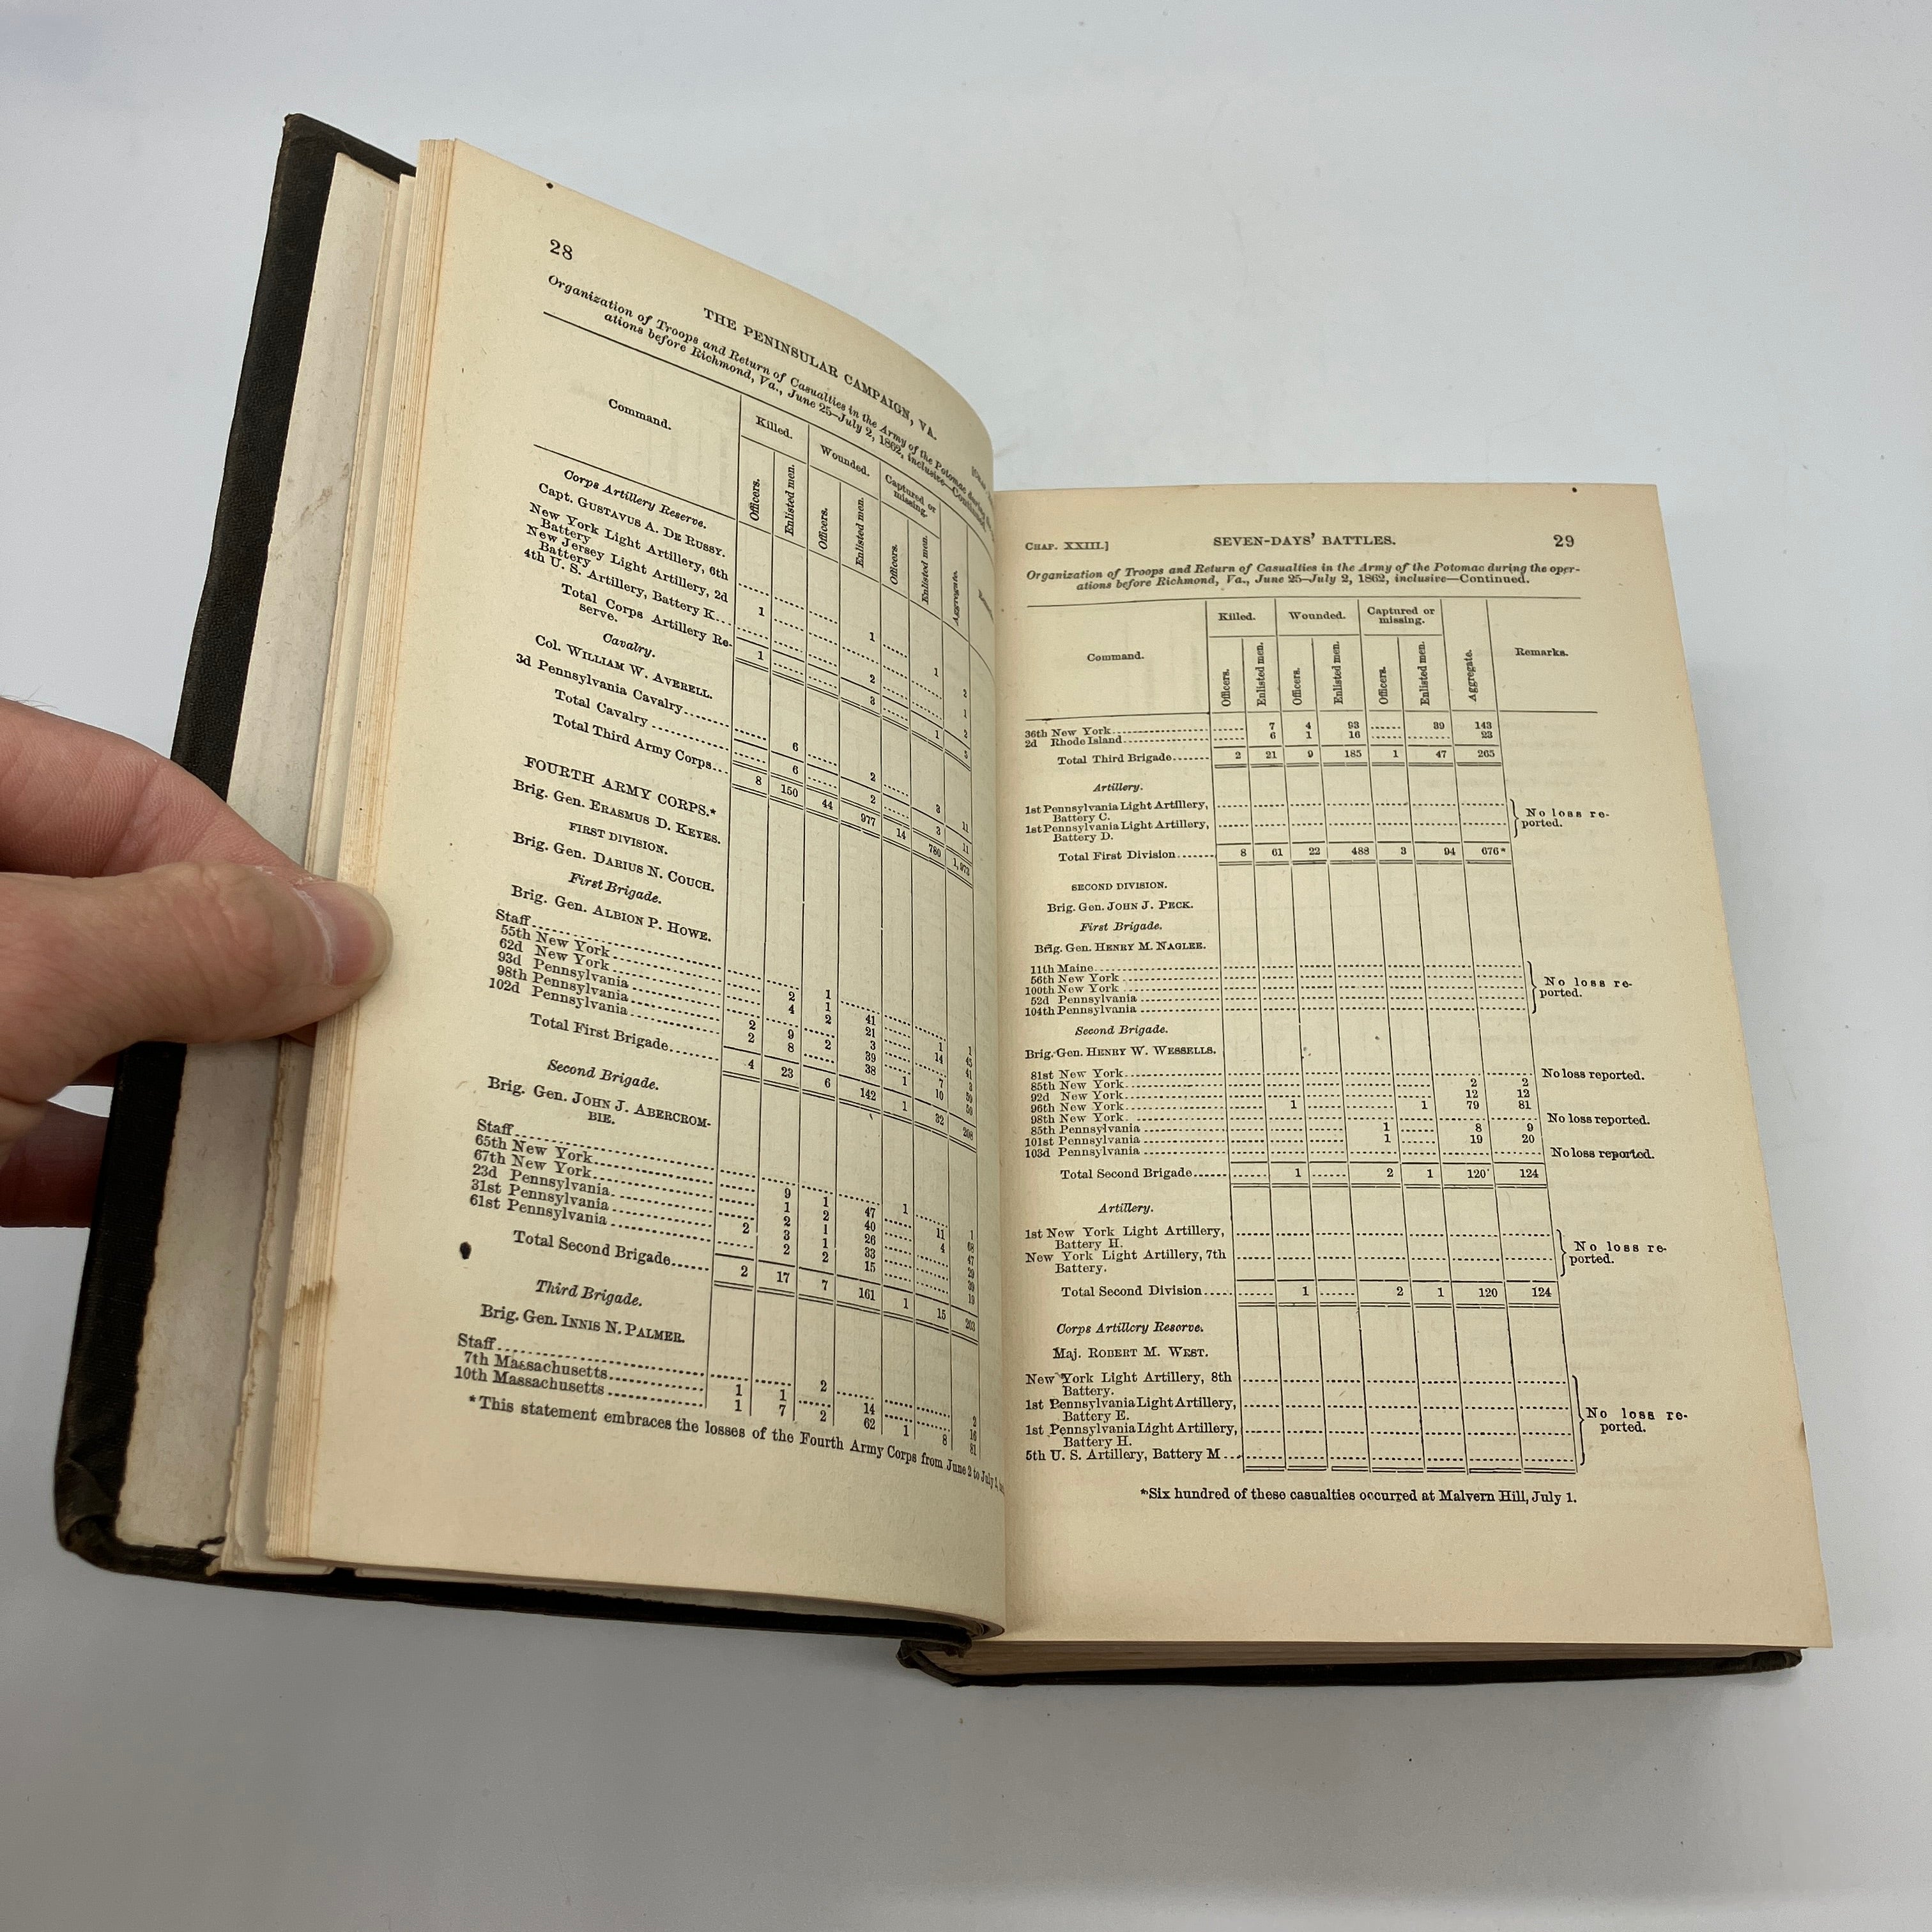 28
THE PENINSULAR CAMPAIGN, VA.
Organization of Troops and Return of Casualties in the Army of the Potomac during
ations before Richmond, Va., June 25–July 2, 1862, inclusive—Continued.
Command. Killed. Wounded. Captured or missing. Aggregate.
Officers. Enlisted men. Officers. Enlisted men. Officers. Enlisted men.
Corps Artillery Reserve.
Capt. GUSTAVUS A. DE RUSSY.
New York Light Artillery, 6th
Battery
New Jersey Light Artillery, 2d 1 1 2
Battery
4th U. S. Artillery, Battery K... 2 2
Total Corps Artillery Re- 1 3 1 5
serve.
Cavalry.
Col. WILLIAM W. AVERELL.
3d Pennsylvania Cavalry 6 2 3 11
Total Cavalry 6 2 3 11
Total Third Army Corps... 8 150 44 977 14 780 1,973
FOURTH ARMY CORPS.*
Brig. Gen. ERASMUS D. KEYES.
FIRST DIVISION.
Brig. Gen. DARIUS N. COUCH.
First Brigade.
Brig. Gen. ALBION P. HOWE.
Staff 1 1
55th New York 2 1 41 1 45
62d New York 4 2 21 14 41
93d Pennsylvania 3 3
98th Pennsylvania 2 9 2 39 7 59
102d Pennsylvania 2 8 38 1 10
Total First Brigade 4 23 6 142 1 32 208
Second Brigade.
Brig. Gen. JOHN J. ABERCROM-
BIE.
Staff 1 1
65th New York 9 1 47 11 68
67th New York 1 2 40 4 47
23d Pennsylvania 2 1 26 29
31st Pennsylvania 2 3 1 33 39
61st Pennsylvania 2 2 15 19
Total Second Brigade 2 17 7 161 1 15 203
Third Brigade.
Brig. Gen. INNIS N. PALMER.
Staff 2 2
7th Massachusetts 1 1 14 16
10th Massachusetts 1 7 2 62 1 8 81
*This statement embraces the losses of the Fourth Army Corps from June 2 to July
CHAP. XXIII.] SEVEN-DAYS' BATTLES. 29
Organization of Troops and Return of Casualties in the Army of the Potomac during the oper-
ations before Richmond, Va., June 25–July 2, 1862, inclusive—Continued.
Command. Killed. Wounded. Captured or missing. Aggregate. Remarks.
Officers. Enlisted men. Officers. Enlisted men. Officers. Enlisted men.
36th New York 7 4 93 39 143
2d Rhode Island 6 1 16 23
Total Third Brigade 2 21 9 185 1 47 265
Artillery.
1st Pennsylvania Light Artillery,
Battery C. No loss re-
1st Pennsylvania Light Artillery, ported.
Battery D.
Total First Division 8 61 22 488 3 94 676*
SECOND DIVISION.
Brig. Gen. JOHN J. PECK.
First Brigade.
Brig. Gen. HENRY M. NAGLEE.
11th Maine
56th New York No loss re-
100th New York ported.
52d Pennsylvania
104th Pennsylvania
Second Brigade.
Brig. Gen. HENRY W. WESSELLS.
81st New York No loss reported.
85th New York 2 2
92d New York 12 12
96th New York 1 1 79 81
98th New York No loss reported.
85th Pennsylvania 1 8 9
101st Pennsylvania 1 19 20
103d Pennsylvania No loss reported.
Total Second Brigade 1 2 1 120 124
Artillery.
1st New York Light Artillery,
Battery H. No loss re-
New York Light Artillery, 7th ported.
Battery.
Total Second Division 1 2 1 120 124
Corps Artillery Reserve.
Maj. ROBERT M. WEST.
New York Light Artillery, 8th
Battery.
1st Pennsylvania Light Artillery,
Battery E. No loss re-
1st Pennsylvania Light Artillery, ported.
Battery H.
5th U. S. Artillery, Battery M
*Six hundred of these casualties occurred at Malvern Hill, July 1.